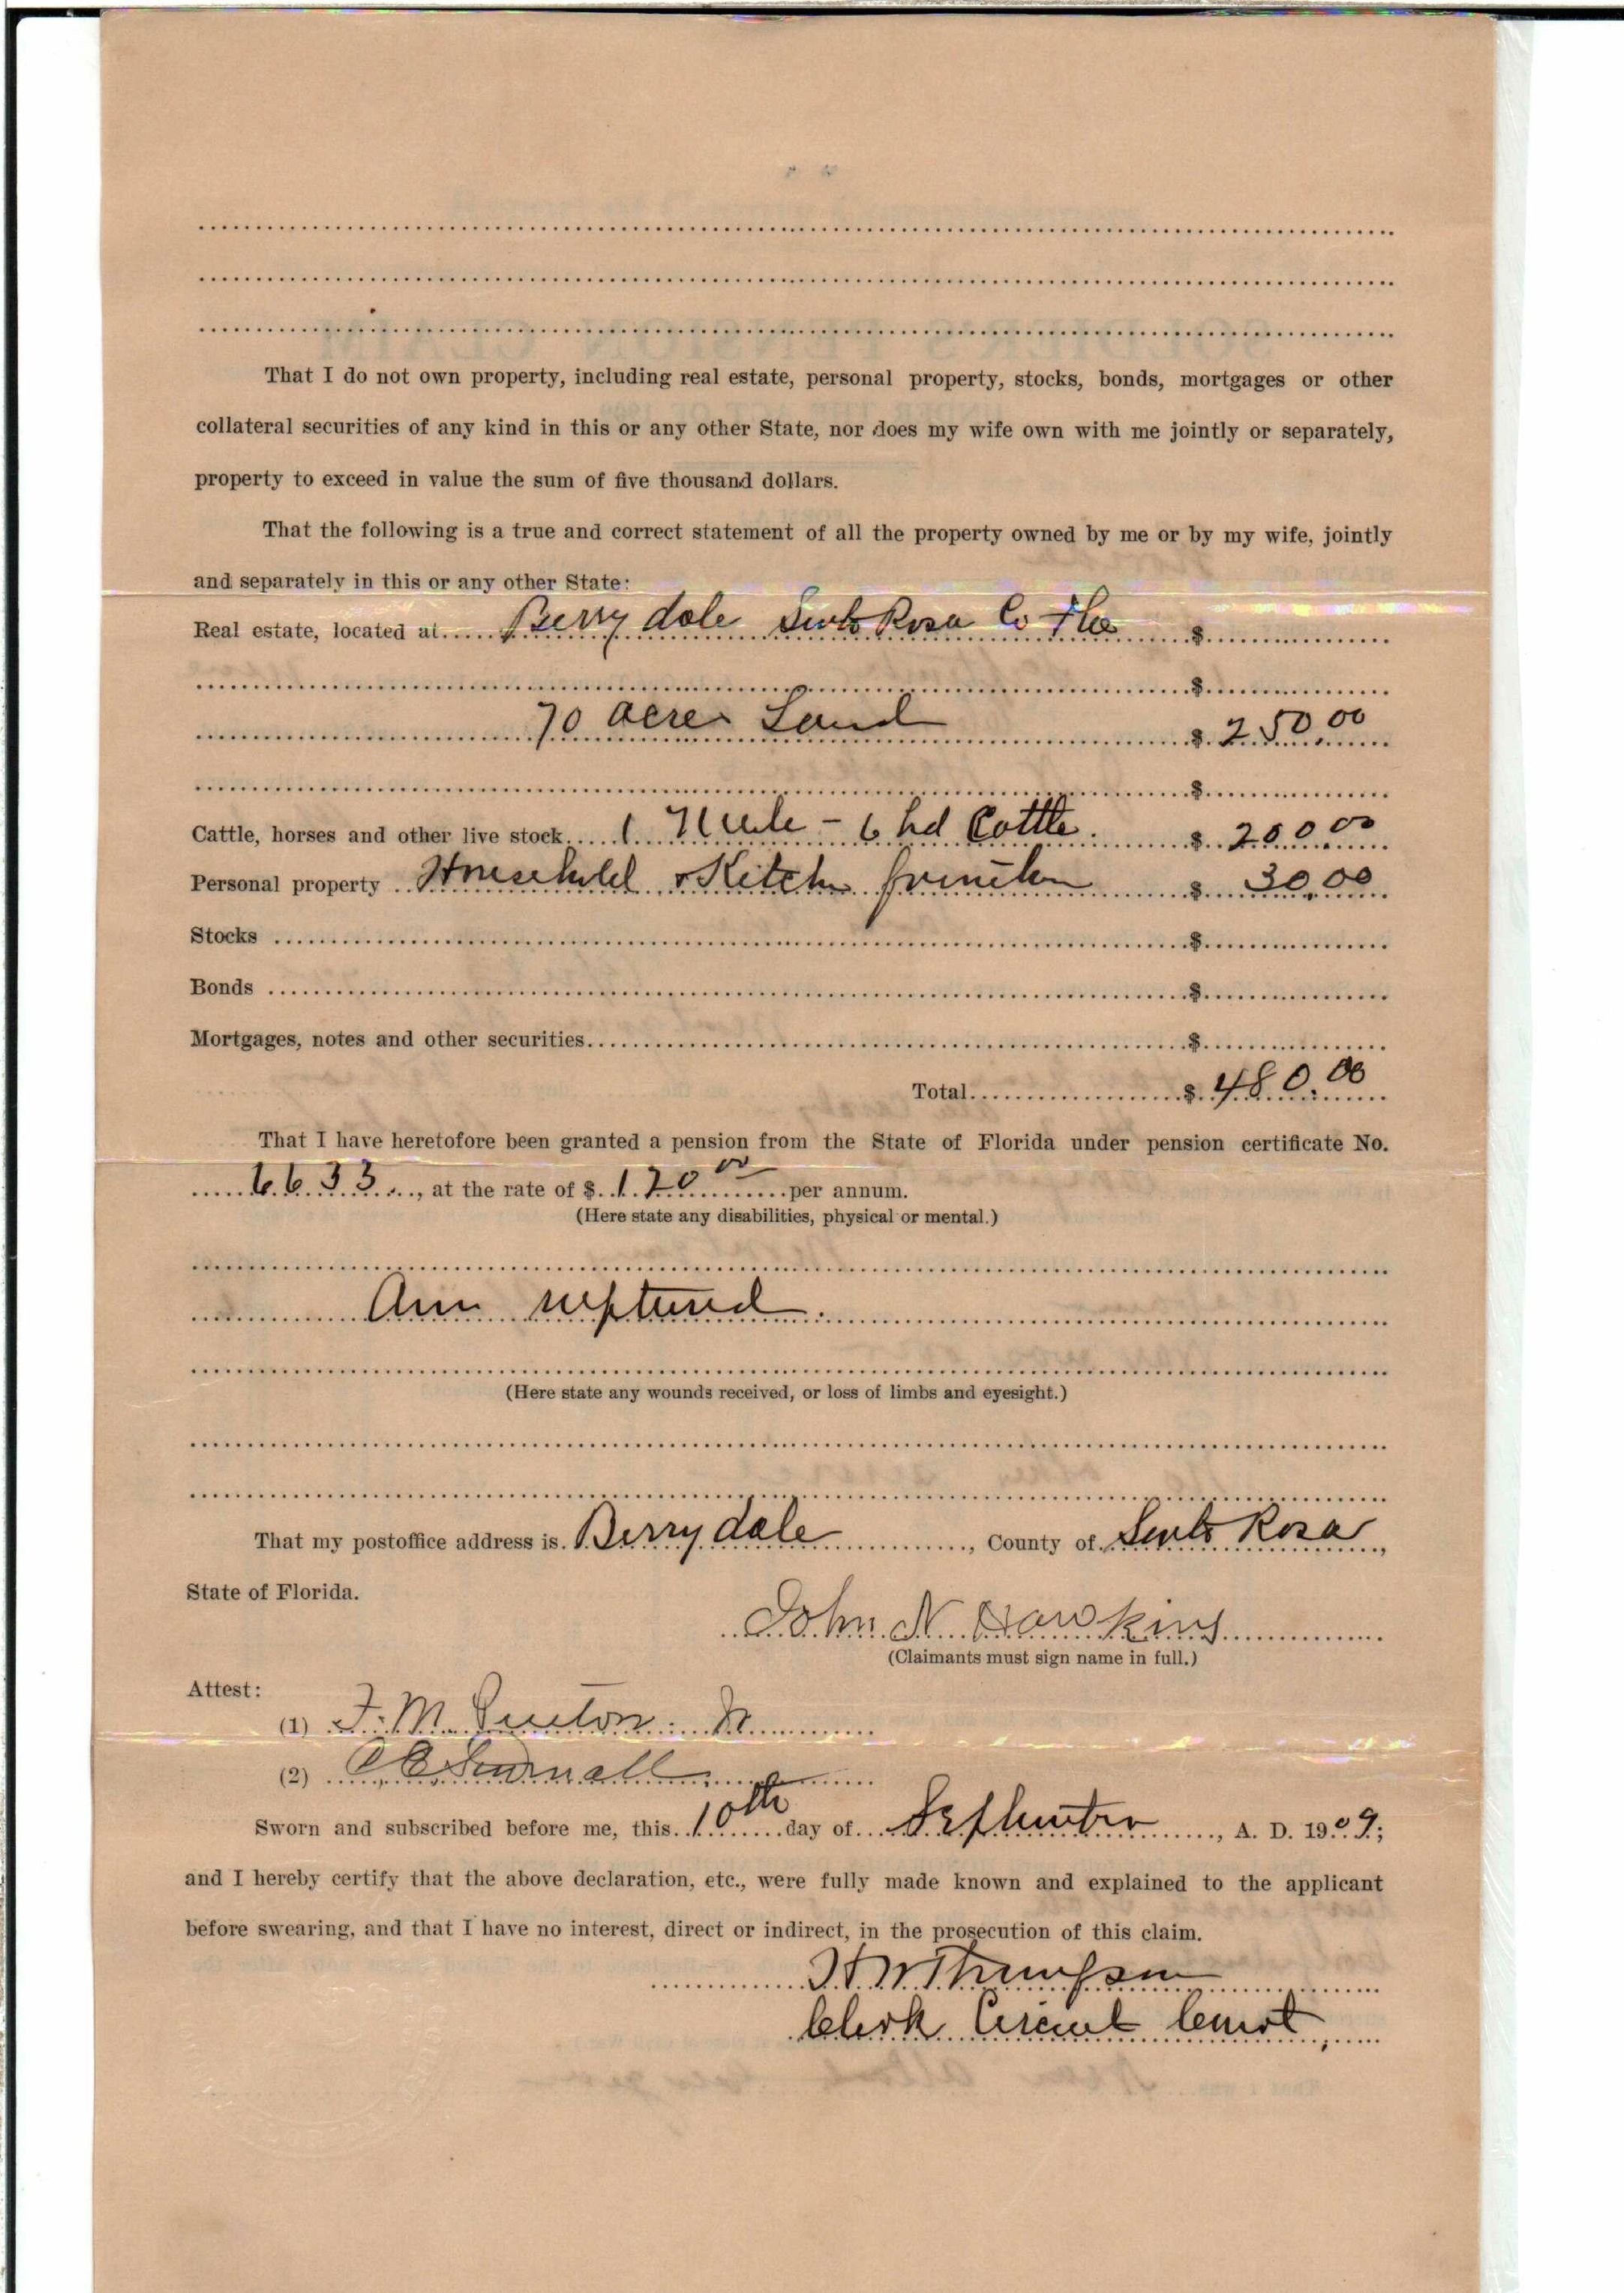 That I do not own property, including real estate, personal property, stocks, bonds, mortgages or other
collateral securities of any kind in this or any other State, nor does my wife own with me jointly or separately,
property to exceed in value the sum of five thousand dollars.
That the following is a true and correct statement of all the property owned by me or by my wife, jointly
and separately in this or any other State:
Real estate, located at Berrydale Santa Rosa Co Fla $
$
70 acres Land $ 250.00
$
Cattle, horses and other live stock 1 Mule - 6 hd Cattle. $ 200.00
Personal property Household & Kitchn $ 30.00
Stocks $
Bonds $
Mortgages, notes and other securities $
Total $ 480.00
That I have heretofore been granted a pension from the State of Florida under pension certificate No.
6633, at the rate of $ 120 00 per annum.
(Here state any disabilities, physical or mental.)
Am ruptured.
(Here state any wounds received, or loss of limbs and eyesight.)
That my postoffice address is Berrydale, County of Santa Rosa,
State of Florida.
John N Hawkins
(Claimants must sign name in full.)
Attest:
(1) F. M.
(2)
Sworn and subscribed before me, this 10th day of September, A. D. 1909;
and I hereby certify that the above declaration, etc., were fully made known and explained to the applicant
before swearing, and that I have no interest, direct or indirect, in the prosecution of this claim.
H W Thompson
Clerk Circuit Court,